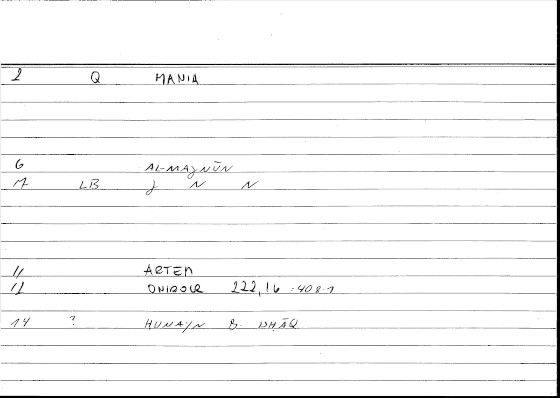 2 Q MANIA
6 AL-MAJNŪN
7 LB J N N
11 ARTEM
12 ONIROCR 222,16 :408-1
14 ? ḤUNAYN B. ISḤĀQ